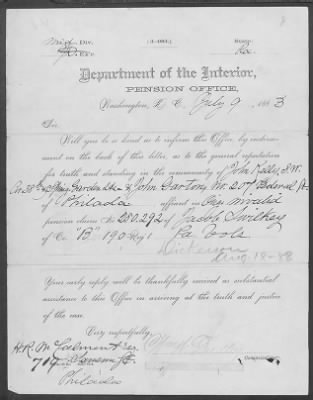 Mid. Div.
(3—081.)
Department of the Interior,
PENSION OFFICE,
Washington, D. C., July 9, 1883
Sir:
Will you be so kind as to inform this Office, by endorse-
ment on the back of this letter, as to the general reputation
for truth and standing in the community of John Kelly, S.W.
Cor 23 & Spring Garden Sts & John Carton, No 207 Federal St
of Philada affiant in Orig Invalid
pension claim No. 280.292 of Jacob
of Co. "B" 190 Reg't Pa Vols
Dickerson
Aug 18-88
Your early reply will be thankfully received as substantial
assistance to this Office in arriving at the truth and justice
of the case.
Very respectfully,
H.R. M Calmont
719 Sansom St.
Philada